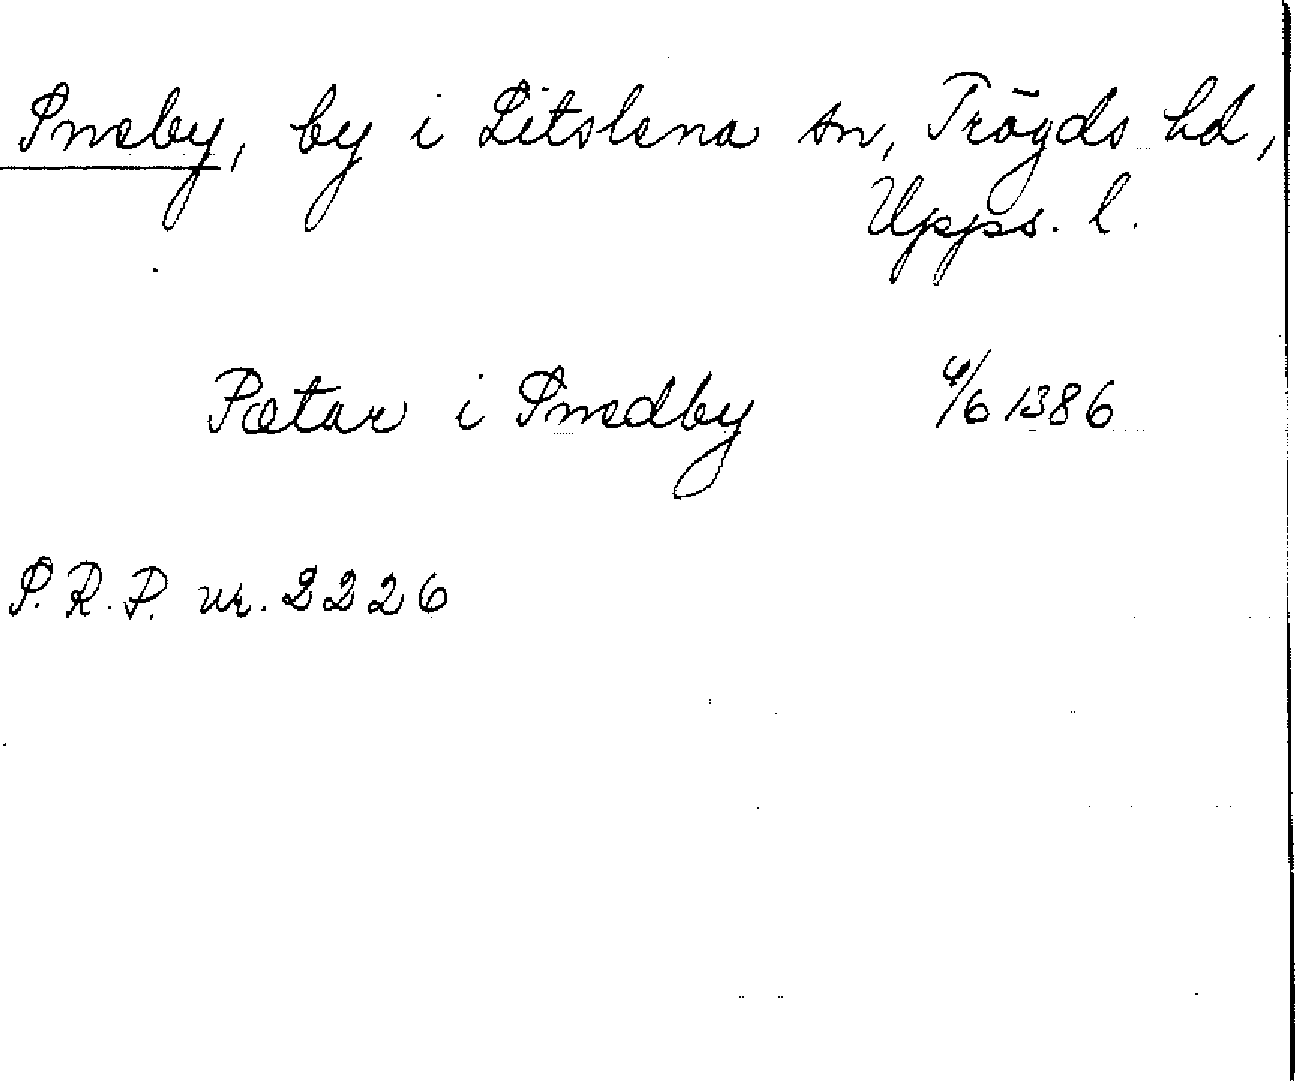 Smeby, by i Litslena sn, Trögds hd,
Upps. l.
Pætar i Smedby 4/6 1386
S.R.P. nr. 2226